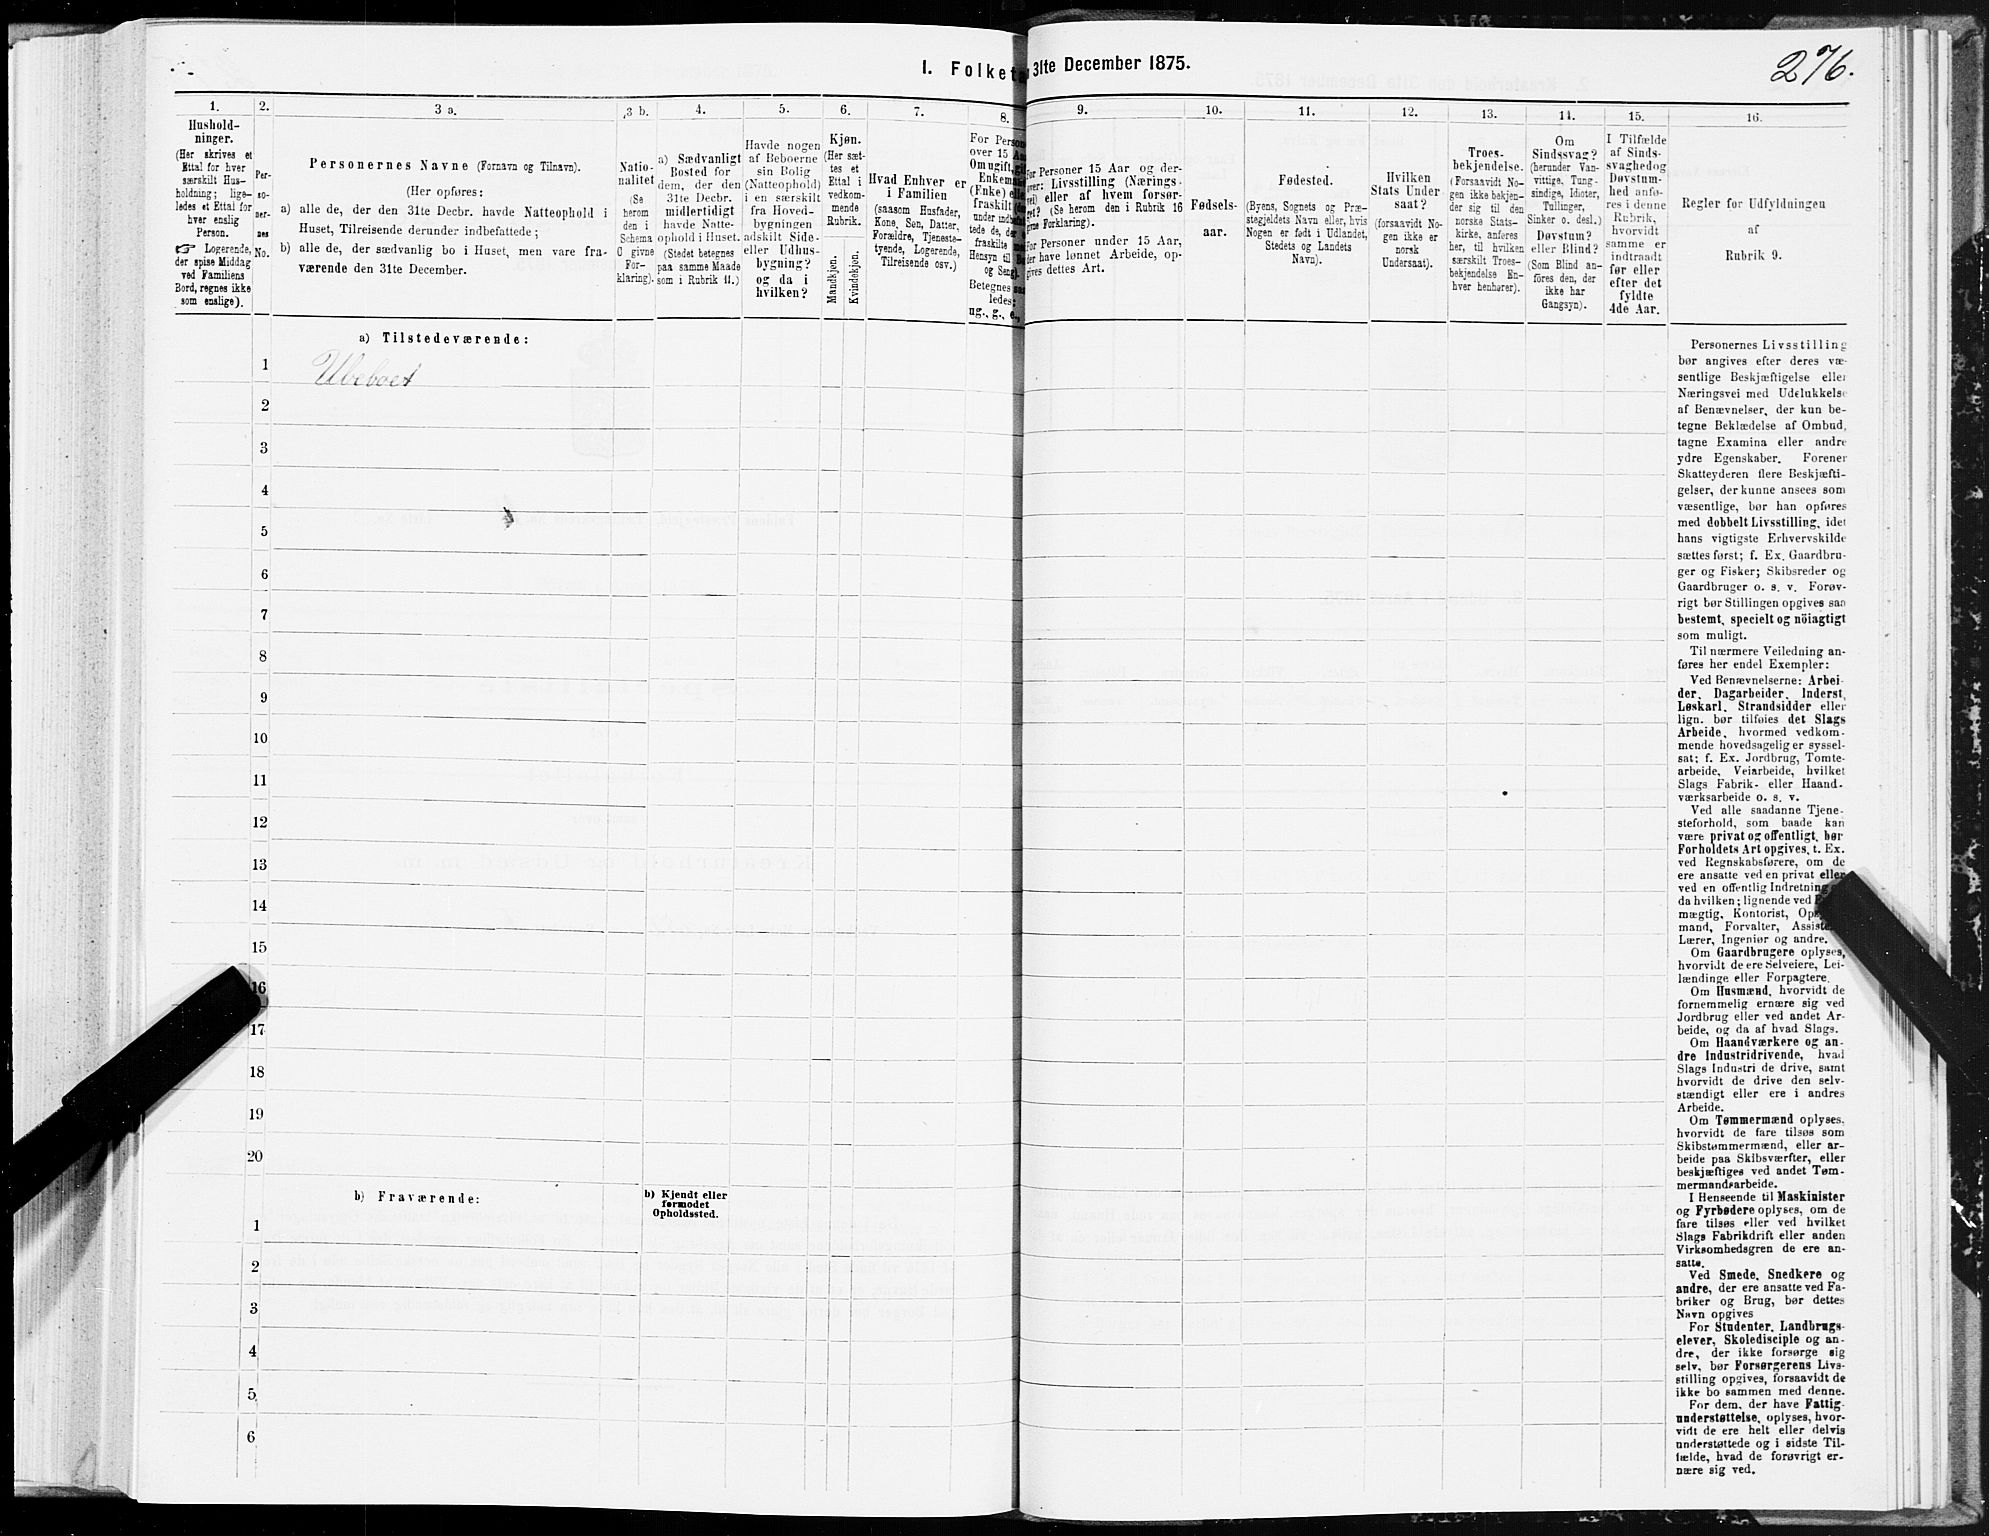 276.
I. Folket 31te December 1875.
1.
Hushold-
ninger.
(Her skrives et
Ettal for hver
særskilt Hus-
holdning; lige-
ledes et Ettal for
hver enslig
Person.
☞ Logerende,
der spise Middag
ved Familiens
Bord, regnes ikke
som enslige).
2.
Per-
so-
ner-
nes
No.
3 a.
Personernes Navne (Fornavn og Tilnavn).
(Her opføres:
a) alle de, der den 31te Decbr. havde Natteophold i
Huset, Tilreisende derunder indbefattede;
b) alle de, der sædvanlig bo i Huset, men vare fra-
værende den 31te December.
3 b.
Natio-
nalitet
(Se
herom
den i
Schema
C givne
For-
klaring).
4.
a) Sædvanligt
Bosted for
dem, der den
31te Decbr.
midlertidigt
havde Natte-
ophold i Huset.
(Stedet betegnes
paa samme Maade
som i Rubrik 11.)
5.
Havde nogen
af Beboerne
sin Bolig
(Natteophold)
i en særskilt
fra Hoved-
bygningen
adskilt Side-
eller Udhus-
bygning?
og da i
hvilken?
6.
Kjøn.
(Her sæt-
tes et
Ettal i
vedkom-
mende
Rubrik.
Mandkjøn.
Kvindekjøn.
7.
Hvad Enhver er
i Familien
(saasom Husfader,
Kone, Søn, Datter,
Forældre, Tjeneste-
tyende, Logerende,
Tilreisende osv.)
8.
For Person
over 15 Aa
Om ugift, gif
Enkema
(Enke) elle
fraskilt
under indbefat
tede de, der
fraskilte
Hensyn til B
og Seng).
Betegnes saa
ledes:
ug., g., e.,
9.
For Personer 15 Aar og der-
over: Livsstilling (Nærings-
vei) eller af hvem forsør-
get? (Se herom den i Rubrik 16
givne Forklaring).
For Personer under 15 Aar,
der have lønnet Arbeide, op-
gives dettes Art.
10.
Fødsels-
aar.
11.
Fødested.
(Byens, Sognets og Præ-
stegjeldets Navn eller, hvis
Nogen er født i Udlandet,
Stedets og Landets
Navn).
12.
Hvilken
Stats Under
saat?
(forsaavidt No-
gen ikke er
norsk
Undersaat).
13.
Troes-
bekjendelse.
(Forsaavidt No-
gen ikke bekjen-
der sig til den
norske Stats-
kirke, anføres
her, til hvilken
særskilt Troes-
bekjendelse En-
hver henhører).
14.
Om
Sindssvag?
(herunder Van-
vittige, Tung-
sindige, Idioter,
Tullinger,
Sinker o. desl.)
Døvstum?
eller Blind?
(Som Blind an-
føres den, der
ikke har
Gangsyn).
15.
I Tilfælde
af Sinds-
svaghed og
Døvstum-
hed anfø-
res i denne
Rubrik,
hvorvidt
samme er
indtraadt
før eller
efter det
fyldte
4de Aar.
16.
Regler for Udfyldningen
af
Rubrik 9.
a) Tilstedeværende:
1 Ubeboet
2
3
4
5
6
7
8
9
10
11
12
13
14
15
16
17
18
19
20
b) Fraværende:
b) Kjendt eller
formodet
Opholdssted.
1
2
3
4
5
6
Personernes Livsstilling
bør angives efter deres væ-
sentlige Beskjæftigelse eller
Næringsvei med Udelukkelse
af Benævnelser, der kun be-
tegne Beklædelse af Ombud,
tagne Examina eller andre
ydre Egenskaber. Forener
Skatteyderen flere Beskjæfti-
gelser, der kunne ansees som
væsentlige, bør han opføres
med dobbelt Livsstilling, idet
hans vigtigste Erhvervskilde
sættes først; f. Ex. Gaardbru-
ger og Fisker; Skibsreder og
Gaardbruger o. s. v. Forøv-
rigt bør Stillingen opgives saa
bestemt, specielt og nöiagtigt
som muligt.
Til nærmere Veiledning an-
føres her endel Exempler:
Ved Benævnelserne: Arbei-
der, Dagarbeider, Inderst,
Løskarl, Strandsidder eller
lign. bør tilføies det Slags
Arbeide, hvormed vedkom-
mende hovedsagelig er syssel-
sat; f. Ex. Jordbrug, Tomte-
arbeide, Veiarbeide, hvilket
Slags Fabrik- eller Haand-
værksarbeide o. s. v.
Ved alle saadanne Tjene-
steforhold, som baade kan
være privat og offentligt, bør
Forholdets Art opgives, t. Ex.
ved Regnskabsførere, om de
ere ansatte ved en privat eller
ved en offentlig Indretning
da hvilken; lignende ved
mægtig, Kontorist, Op
mand, Forvalter, Assiste
Lærer, Ingeniør og andre.
Om Gaardbrugere oplyses,
hvorvidt de ere Selveiere, Lei-
lændinge eller Forpagtere.
Om Husmænd, hvorvidt de
fornemmelig ernære sig ved
Jordbrug eller ved andet Ar-
beide, og da af hvad Slags.
Om Haandværkere og an-
dre Industridrivende, hvad
Slags Industri de drive, samt
hvorvidt de drive den selv-
stændigt eller ere i andres
Arbeide.
Om Tømmermænd oplyses,
hvorvidt de fare tilsøs som
Skibstømmermænd, eller ar-
beide paa Skibsværfter, eller
beskjæftiges ved andet Tøm-
mermandsarbeide.
I Henseende til Maskinister
og Fyrbødere oplyses, om de
fare tilsøs eller ved hvilket
Slags Fabrikdrift eller anden
Virksomhedsgren de ere an-
satte.
Ved Smede, Snedkere og
andre, der ere ansatte ved Fa-
briker og Brug, bør dettes
Navn opgives
For Studenter, Landbrugs-
elever, Skoledisciple og an-
dre, der ikke forsørge sig
selv, bør Forsørgerens Livs-
stilling opgives, forsaavidt de
ikke bo sammen med denne.
For dem, der have Fattig-
understøttelse, oplyses, hvor-
vidt de ere helt eller delvis
understøttede og i sidste Til-
fælde, hvad de forøvrigt er-
nære sig ved.